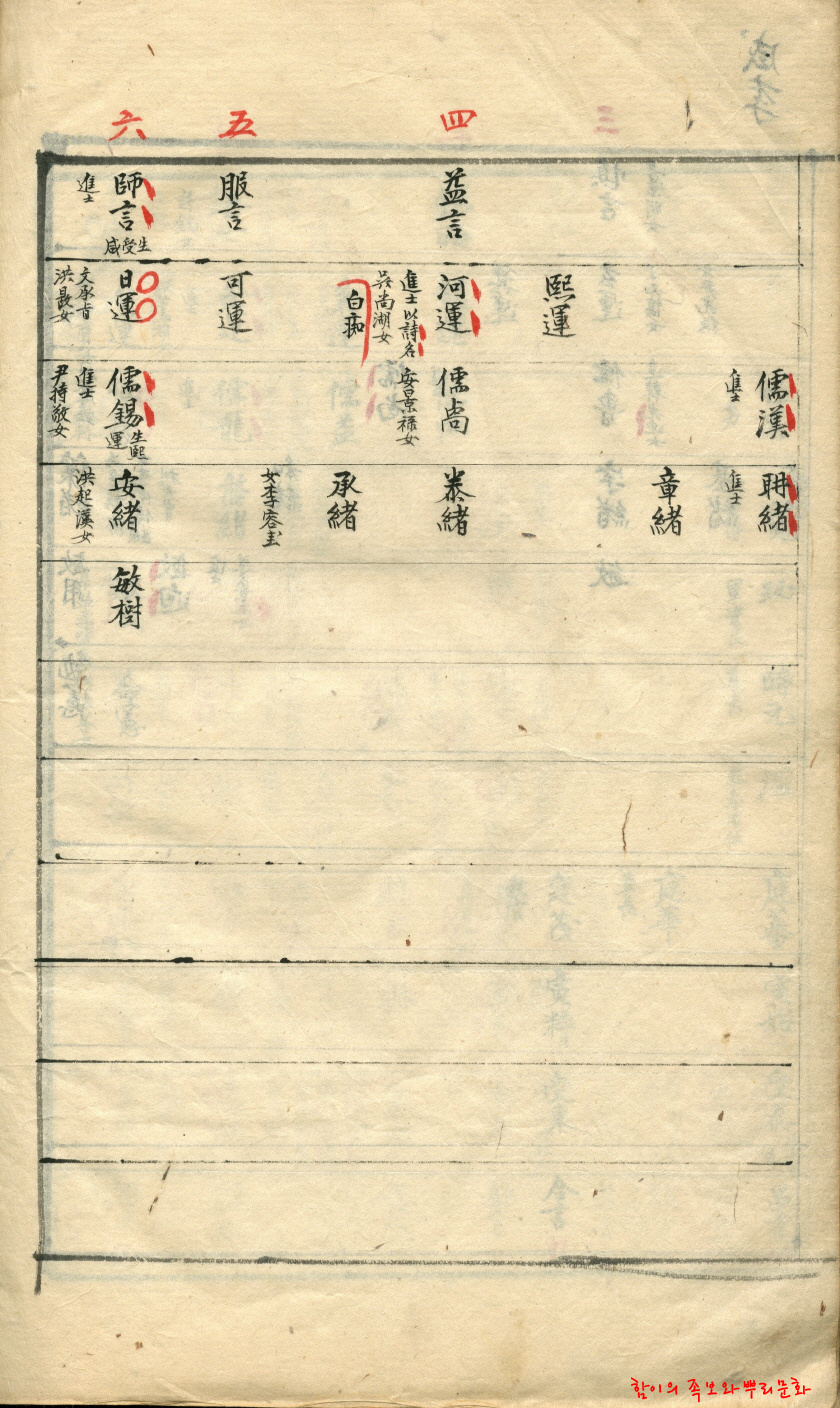 三
四
五
六
益言
服言
師言
生
受
咸
進士
熙運
河運
進士以詩名
吳尚湖女
白痴
可運
日運
文承旨
洪最女
儒漢
進士
儒尚
安景祿女
儒錫
生熙
運
進士
尹持敬女
聃緒
進士
章緒
泰緒
承緒
女李容圭
安緒
洪起漢女
敏樹
함이의 족보와뿌리문화